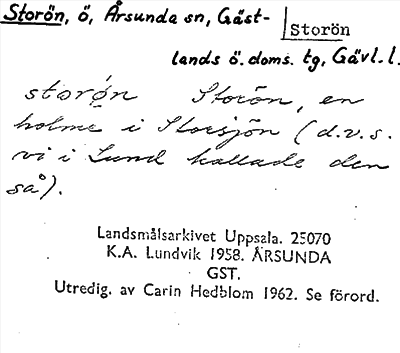 Storön, ö, Årsunda sn, Gäst-
Storön
lands ö. doms. tg, Gävl. l.
storǿn Storön, en
holme i Storsjön (d.v.s.
vi i Lund kallade den
så).
Landsmålsarkivet Uppsala. 25070
K.A. Lundvik 1958. ÅRSUNDA
GST.
Utredig. av Carin Hedblom 1962. Se förord.